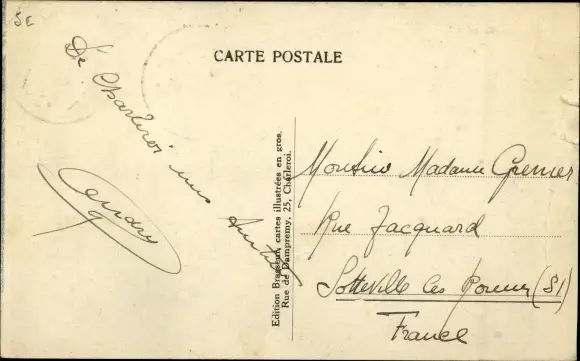 SE
CARTE POSTALE
De Charleroi
André
Edition Brasseur, cartes illustrées en gros.
Rue de Dampremy, 25, Charleroi.
Monsieur Madame Grenier
Rue Jacquard
Sotteville les Rouen (SI)
France